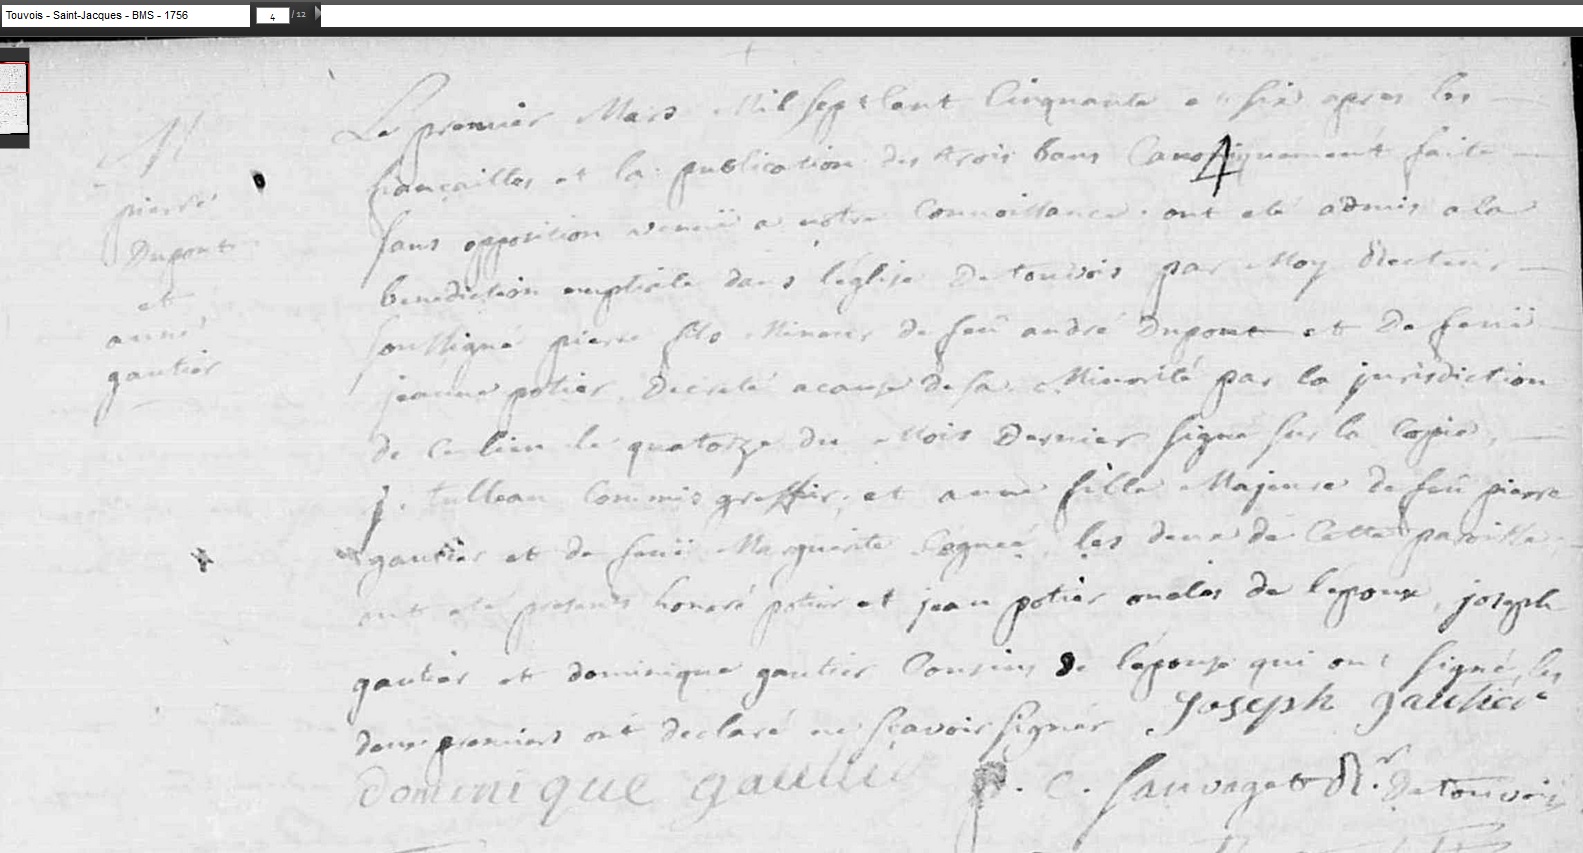 Touvois - Saint-Jacques - BMS - 1756
4 / 12
M
pierre
Dupont
et
anne
gautier
Le premier Mars Mil sept Cent Cinquante e six apres les
fiançailles et la publication des trois bans Canoniquement faite
4
sans opposition venuë a notre Connoissance ont eté admis a la
benediction nuptiale dans l'église De touvois par Moy Recteur
soussigné pierre fils Mineur de feu andré Dupont et De feuë
jeanne potier Decreté a cause de sa Minorité par la jurisdiction
de Ce lieu le quatorze du Mois Dernier signé sur la Copie,
j. tulleau Commis greffier, et anne fille Majeure de feu pierre
gautier et de feuë Marguerite Cognée les deux de Cette paroisse
ont eté presents honoré potier et jean potier oncles de l'epoux, joseph
gautier et dominique gautier Cousins De l'epouse qui ont signé, les
deux premiers ont declaré ne scavoir signer Joseph gautier
dominique gautier P. C. Sauvaget Rr. De touvois